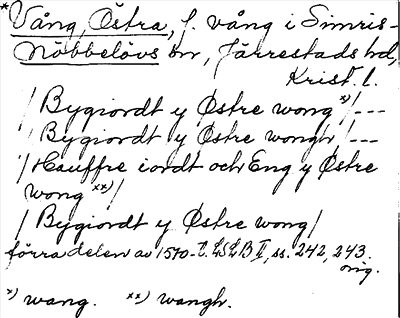 *Vång, Östra, f. vång i Simris-
Nöbbelövs sn, Järrestads hd,
Krist. l.
/ Bygiordt y Østre wong x)/---
/ Bygiordt y Østre wongh /---
/ Hauffre iordt och Eng y Østre
wong xx)/
/ Bygiordt y Østre wong/
förra delen av 1570-t. LSLB II, ss. 242, 243.
orig.
x) wang. xx) wangh.